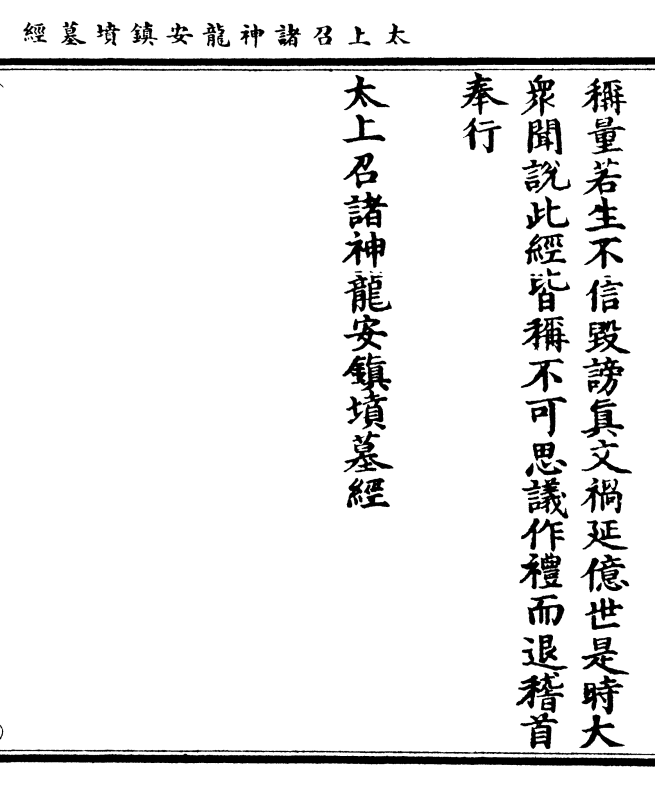 太上召諸神龍安鎮墳墓經
稱量若生不信毀謗眞文禍延億世是時大
衆聞說此經皆稱不可思議作禮而退稽首
奉行
太上召諸神龍安鎮墳墓經